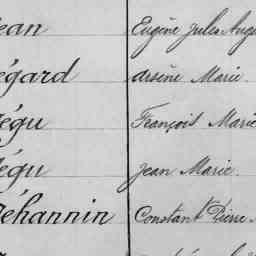 ean Eugène Jules Aug
égard Arsène Marie.
égu François Marie
égu Jean Marie.
éhannin Constant Pierre